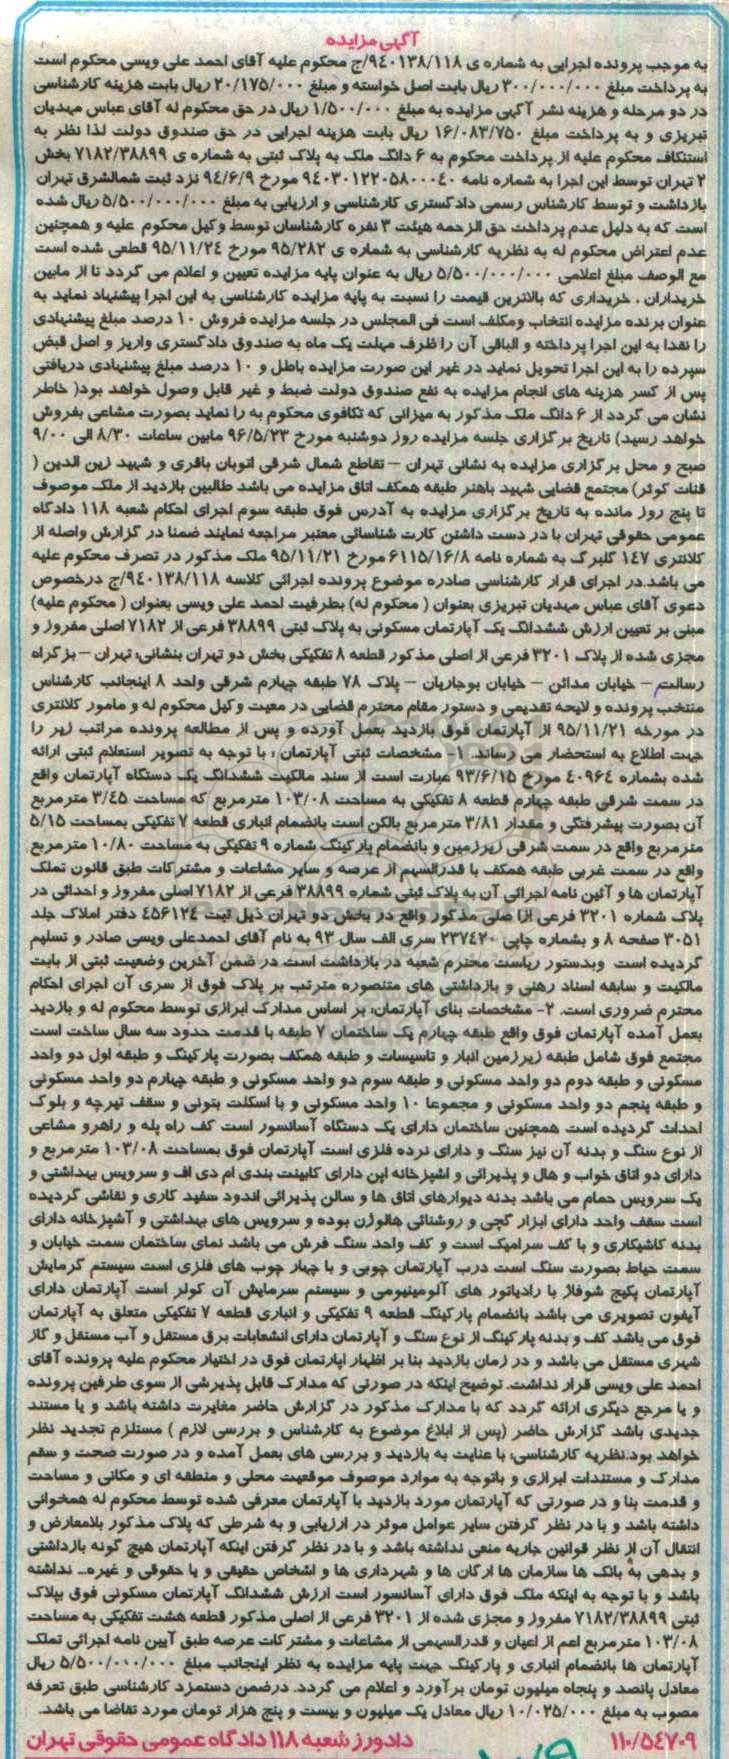 آگهی مزایده
به موجب پرونده اجرایی به شماره ی ۹۴۰۱۳۸/۱۱۸/ج محکوم علیه آقای احمد علی ویسی محکوم است
به پرداخت مبلغ ۳۰۰/۰۰۰/۰۰۰ ریال بابت اصل خواسته و مبلغ ۲۰/۱۷۵/۰۰۰ ریال بابت هزینه کارشناسی
در دو مرحله و هزینه نشر آگهی مزایده به مبلغ ۱/۵۰۰/۰۰۰ ریال در حق محکوم له آقای عباس مهدیان
تبریزی و به پرداخت مبلغ ۱۶/۰۸۳/۷۵۰ ریال بابت هزینه اجرایی در حق صندوق دولت لذا نظر به
استنکاف محکوم علیه از پرداخت محکوم به ۶ دانگ ملک به پلاک ثبتی به شماره ی ۷۱۸۲/۳۸۸۹۹ بخش
۲ تهران توسط این اجرا به شماره نامه ۹۴۰۳۰۱۲۲۰۵۸۰۰۰۴۰ مورخ ۹۴/۶/۹ نزد ثبت شمالشرق تهران
بازداشت و توسط کارشناس رسمی دادگستری کارشناسی و ارزیابی به مبلغ ۵/۵۰۰/۰۰۰/۰۰۰ ریال شده
است که به دلیل عدم پرداخت حق الزحمه هیئت ۳ نفره کارشناسان توسط وکیل محکوم علیه و همچنین
عدم اعتراض محکوم له به نظریه کارشناسی به شماره ی ۹۵/۲۸۲ مورخ ۹۵/۱۱/۲۴ قطعی شده است
مع الوصف مبلغ اعلامی ۵/۵۰۰/۰۰۰/۰۰۰ ریال به عنوان پایه مزایده تعیین و اعلام می گردد تا از مابین
خریداران ، خریداری که بالاترین قیمت را نسبت به پایه مزایده کارشناسی به این اجرا پیشنهاد نماید به
عنوان برنده مزایده انتخاب ومکلف است فی المجلس در جلسه مزایده فروش ۱۰ درصد مبلغ پیشنهادی
را نقدا به این اجرا پرداخته و الباقی آن را ظرف مهلت یک ماه به صندوق دادگستری واریز و اصل قبض
سپرده را به این اجرا تحویل نماید در غیر این صورت مزایده باطل و ۱۰ درصد مبلغ پیشنهادی دریافتی
پس از کسر هزینه های انجام مزایده به نفع صندوق دولت ضبط و غیر قابل وصول خواهد بود( خاطر
نشان می گردد از ۶ دانگ ملک مذکور به میزانی که تکافوی محکوم به را نماید بصورت مشاعی بفروش
خواهد رسید) تاریخ برگزاری جلسه مزایده روز دوشنبه مورخ ۹۶/۵/۲۳ مابین ساعات ۸/۳۰ الی ۹/۰۰
صبح و محل برگزاری مزایده به نشانی تهران – تقاطع شمال شرقی اتوبان باقری و شهید زین الدین (
قنات کوثر) مجتمع قضایی شهید باهنر طبقه همکف اتاق مزایده می باشد طالبین بازدید از ملک موصوف
تا پنج روز مانده به تاریخ برگزاری مزایده به آدرس فوق طبقه سوم اجرای احکام شعبه ۱۱۸ دادگاه
عمومی حقوقی تهران با در دست داشتن کارت شناسائی معتبر مراجعه نمایند ضمنا در گزارش واصله از
کلانتری ۱۴۷ گلبرگ به شماره نامه ۶۱۱۵/۱۶/۸ مورخ ۹۵/۱۱/۲۱ ملک مذکور در تصرف محکوم علیه
می باشد.در اجرای قرار کارشناسی صادره موضوع پرونده اجرائی کلاسه ۹۴۰۱۳۸/۱۱۸/ج درخصوص
دعوی آقای عباس مهدیان تبریزی بعنوان ( محکوم له) بطرفیت احمد علی ویسی بعنوان ( محکوم علیه)
مبنی بر تعیین ارزش ششدانگ یک آپارتمان مسکونی به پلاک ثبتی ۳۸۸۹۹ فرعی از ۷۱۸۲ اصلی مفروز و
مجزی شده از پلاک ۳۲۰۱ فرعی از اصلی مذکور قطعه ۸ تفکیکی بخش دو تهران بنشانی؛ تهران – بزگراه
رسالت – خیابان مدائن – خیابان بوجاریان – پلاک ۷۸ طبقه چهارم شرقی واحد ۸ اینجانب کارشناس
منتخب پرونده و لایحه تقدیمی و دستور مقام محترم قضایی در معیت وکیل محکوم له و مامور کلانتری
در مورخه ۹۵/۱۱/۲۱ از آپارتمان فوق بازدید بعمل آورده و پس از مطالعه پرونده مراتب زیر را
جهت اطلاع به استحضار می رساند. ۱- مشخصات ثبتی آپارتمان ؛ با توجه به تصویر استعلام ثبتی ارائه
شده بشماره ۴۰۹۶۴ مورخ ۹۳/۶/۱۵ عبارت است از سند مالکیت ششدانگ یک دستگاه آپارتمان واقع
در سمت شرقی طبقه چهارم قطعه ۸ تفکیکی به مساحت ۱۰۳/۰۸ مترمربع که مساحت ۳/۴۵ مترمربع
آن بصورت پیشرفتگی و مقدار ۳/۸۱ مترمربع بالکن است بانضمام انباری قطعه ۷ تفکیکی بمساحت ۵/۱۵
مترمربع واقع در سمت شرقی زیرزمین و بانضمام پارکینگ شماره ۹ تفکیکی به مساحت ۱۰/۸۰ مترمربع
واقع در سمت غربی طبقه همکف با قدرالسهم از عرصه و سایر مشاعات و مشترکات طبق قانون تملک
آپارتمان ها و آئین نامه اجرائی آن به پلاک ثبتی شماره ۳۸۸۹۹ فرعی از ۷۱۸۲ اصلی مفروز و احداثی در
پلاک شماره ۳۲۰۱ فرعی ازا صلی مذکور واقع در بخش دو تهران ذیل ثبت ۴۵۶۱۲۴ دفتر املاک جلد
۳۰۵۱ صفحه ۸ و بشماره چاپی ۲۳۷۴۲۰ سری الف سال ۹۳ به نام آقای احمدعلی ویسی صادر و تسلیم
گردیده است وبدستور ریاست محترم شعبه در بازداشت است در ضمن آخرین وضعیت ثبتی از بابت
مالکیت و سابقه اسناد رهنی و بازداشتی های متصوره مترتب بر پلاک فوق از سری آن اجرای احکام
محترم ضروری است. ۲- مشخصات بنای آپارتمان؛ بر اساس مدارک ابرازی توسط محکوم له و بازدید
بعمل آمده آپارتمان فوق واقع طبقه چهارم یک ساختمان ۷ طبقه با قدمت حدود سه سال ساخت است
مجتمع فوق شامل طبقه زیرزمین انبار و تاسیسات و طبقه همکف بصورت پارکینگ و طبقه اول دو واحد
مسکونی و طبقه دوم دو واحد مسکونی و طبقه سوم دو واحد مسکونی و طبقه چهارم دو واحد مسکونی
و طبقه پنجم دو واحد مسکونی و مجموعا ۱۰ واحد مسکونی و با اسکلت بتونی و سقف تیرچه و بلوک
احداث گردیده است همچنین ساختمان دارای یک دستگاه آسانسور است کف راه پله و راهرو مشاعی
از نوع سنگ و بدنه آن نیز سنگ و دارای نرده فلزی است آپارتمان فوق بمساحت ۱۰۳/۰۸ مترمربع و
دارای دو اتاق خواب و هال و پذیرائی و اشپزخانه اپن دارای کابینت بندی ام دی اف و سرویس بهداشتی و
یک سرویس حمام می باشد بدنه دیوارهای اتاق ها و سالن پذیرائی اندود سفید کاری و نقاشی گردیده
است سقف واحد دارای ابزار گچی و روشنائی هالوژن بوده و سرویس های بهداشتی و آشپزخانه دارای
بدنه کاشیکاری و با کف سرامیک است و کف واحد سنگ فرش می باشد نمای ساختمان سمت خیابان و
سمت حیاط بصورت سنگ است درب آپارتمان چوبی و با چهار چوب های فلزی است سیستم گرمایش
آپارتمان پکیج شوفاژ با رادیاتور های آلومینیومی و سیستم سرمایش آن کولر است آپارتمان دارای
آیفون تصویری می باشد بانضمام پارکینگ قطعه ۹ تفکیکی و انباری قطعه ۷ تفکیکی متعلق به آپارتمان
فوق می باشد کف و بدنه پارکینگ از نوع سنگ و آپارتمان دارای انشعابات برق مستقل و آب مستقل و گاز
شهری مستقل می باشد و در زمان بازدید بنا بر اظهار اپارتمان فوق در اختیار محکوم علیه پرونده آقای
احمد علی ویسی قرار نداشت. توضیح اینکه در صورتی که مدارک قابل پذیرشی از سوی طرفین پرونده
و یا مرجع دیگری ارائه گردد که با مدارک مذکور در گزارش حاضر مغایرت داشته باشد و یا مستند
جدیدی باشد گزارش حاضر (پس از ابلاغ موضوع به کارشناس و بررسی لازم ) مستلزم تجدید نظر
خواهد بود.نظریه کارشناسی؛ با عنایت به بازدید و بررسی های بعمل آمده و در صورت صحت و سقم
مدارک و مستندات ابرازی و باتوجه به موارد موصوف موقعیت محلی و منطقه ای و مکانی و مساحت
و قدمت بنا و در صورتی که آپارتمان مورد بازدید با آپارتمان معرفی شده توسط محکوم له همخوانی
داشته باشد و با در نظر گرفتن سایر عوامل موثر در ارزیابی و به شرطی که پلاک مذکور بلامعارض و
انتقال آن از نظر قوانین جاریه منعی نداشته باشد و با در نظر گرفتن اینکه آپارتمان هیچ گونه بازداشتی
و بدهی به بانک ها سازمان ها ارگان ها و شهرداری ها و اشخاص حقیقی و یا حقوقی و غیره... نداشته
باشد و با توجه به اینکه ملک فوق دارای آسانسور است ارزش ششدانگ آپارتمان مسکونی فوق بپلاک
ثبتی ۷۱۸۲/۳۸۸۹۹ مفروز و مجزی شده از ۳۲۰۱ فرعی از اصلی مذکور قطعه هشت تفکیکی به مساحت
۱۰۳/۰۸ مترمربع اعم از اعیان و قدرالسهمی از مشاعات و مشترکات عرصه طبق آیین نامه اجرائی تملک
آپارتمان ها بانضمام انباری و پارکینگ جهت پایه مزایده به نظر اینجانب مبلغ ۵/۵۰۰/۰۱۰/۰۰۰ ریال
معادل پانصد و پنجاه میلیون تومان برآورد و اعلام می گردد. درضمن دستمزد کارشناسی طبق تعرفه
مصوب به مبلغ ۱۰/۰۲۵/۰۰۰ ریال معادل یک میلیون و بیست و پنج هزار تومان مورد تقاضا می باشد.
۱۱۰/۵۴۷۰۹ دادورز شعبه ۱۱۸ دادگاه عمومی حقوقی تهران